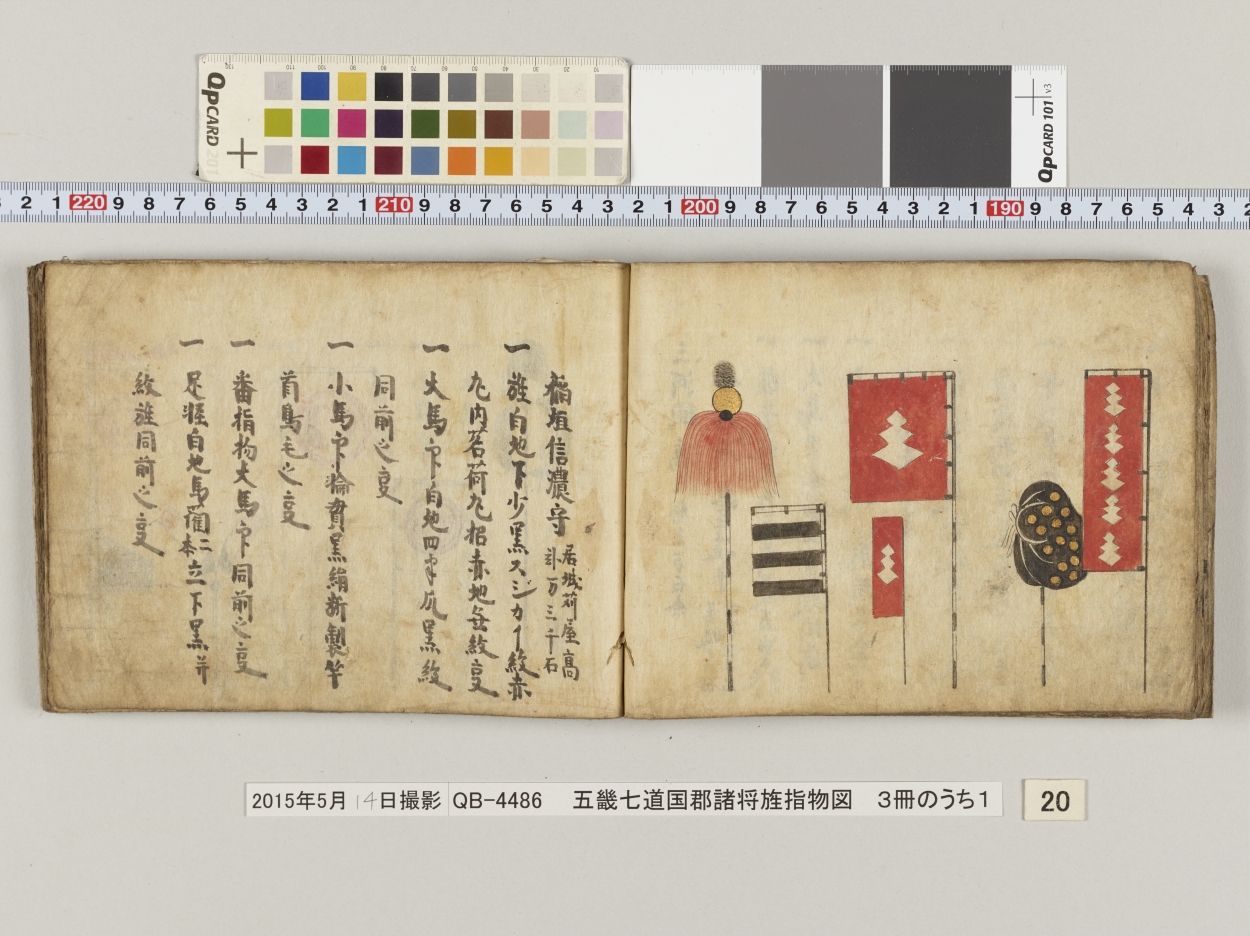 QPCARD 201
QPCARD 101 v3
2 1 220 9 8 7 6 5 4 3 2 1 210 9 8 7 6 5 4 3 2 1 200 9 8 7 6 5 4 3 2 1 190 9 8 7 6 5 4 3 2
稲垣信濃守
居城苅屋高
弐万三千石
一 旌白地下少黒スジカイ紋赤
丸内茗荷丸招赤地無紋㕝
一 大馬印白地四半風黒紋
同前之㕝
一 小馬印輪貫黒絹断製竿
首鳥毛之㕝
一 番指物大馬印同前之㕝
一 足軽白地馬

二本立下黒并
紋旌同前之㕝
2015年5月14日撮影 QB-4486 五畿七道国郡諸将旌指物図 3冊のうち1
20